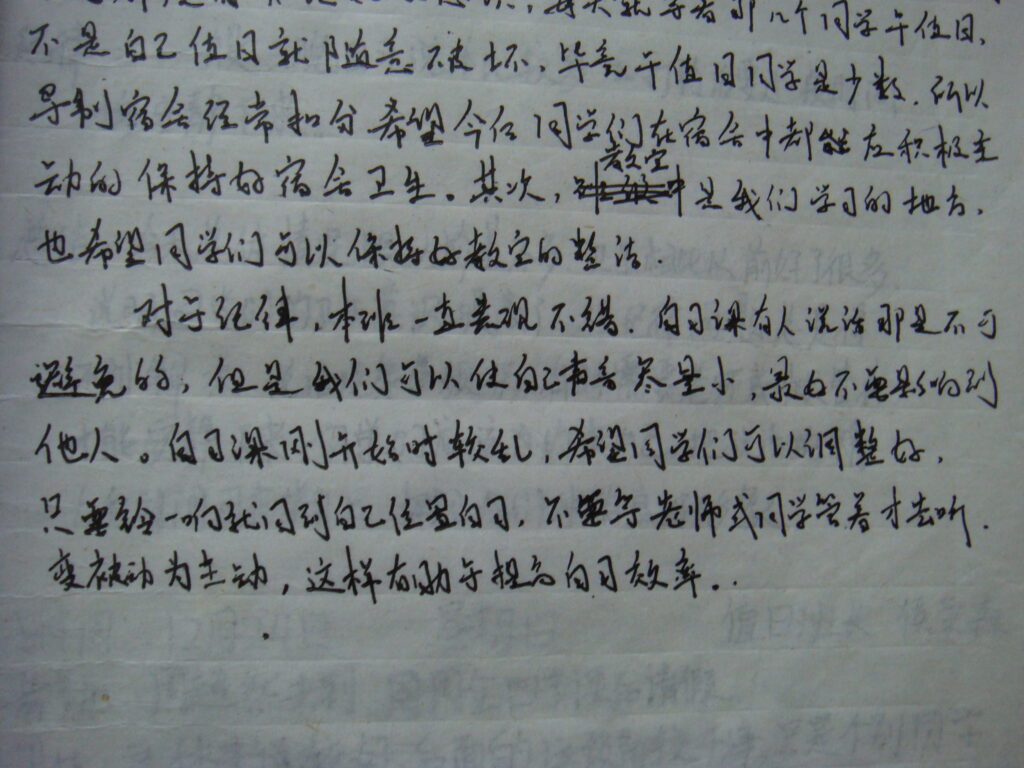 每天就等着那几个同学午值日,
不是自己值日就随意破坏,毕竟午值日同学是少数.所以
导制宿舍经常扣分希望今后同学们在宿舍中都能在积极主
动的保持好宿舍卫生。其次,教室是我们学习的地方,
也希望同学们可以保持好教室的整洁.
对于纪律,本班一直表现不错.自习课有人说话那是不可
避免的,但是我们可以使自己声音尽量小,最好不要影响到
他人。自习课刚开始时较乱,希望同学们可以调整好,
只要铃一响就回到自己位置自习,不要等老师或同学管着才去听.
变被动为主动,这样有助于提高自习效率..